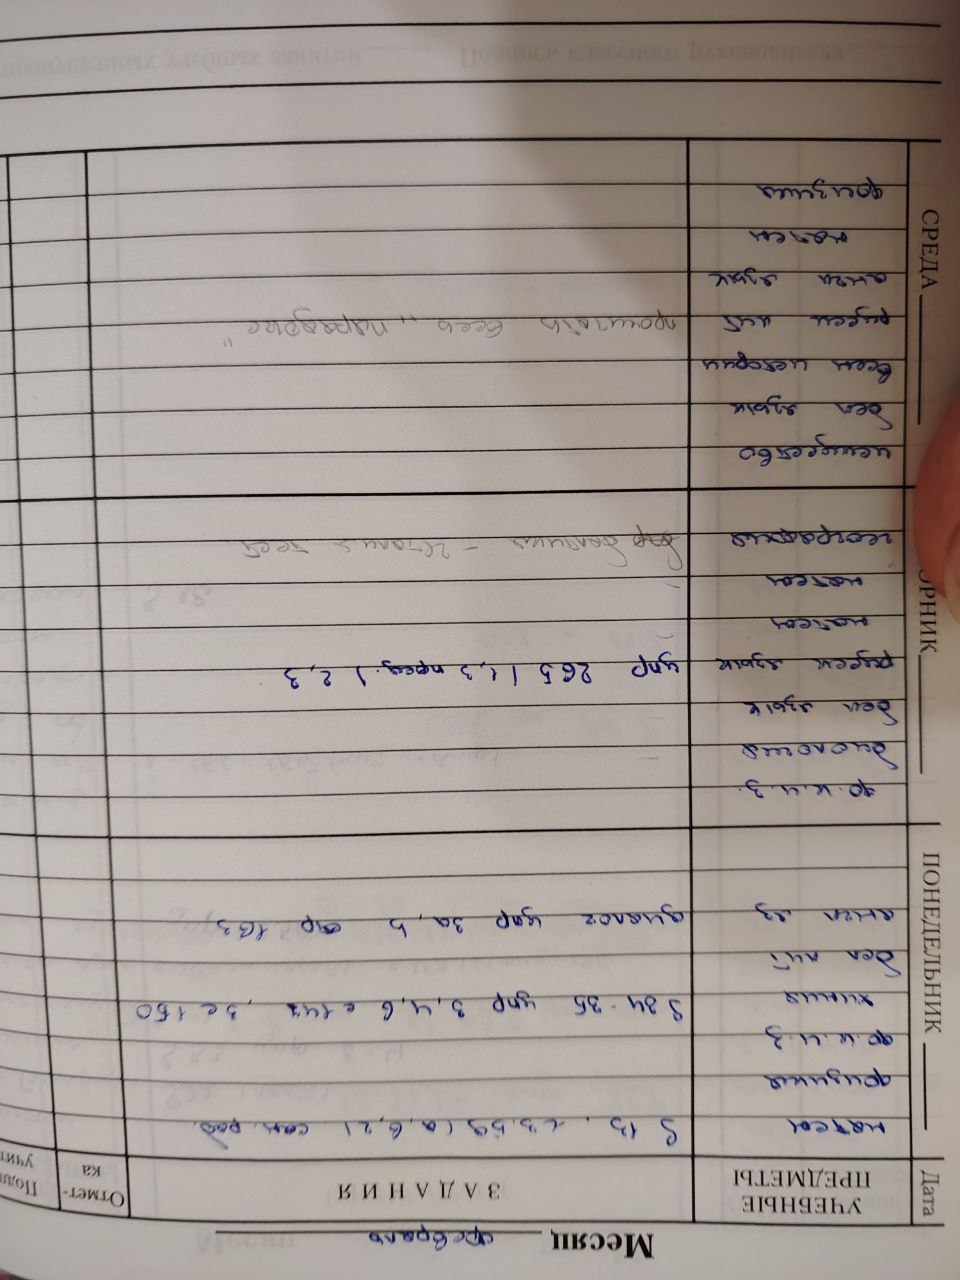 Месяц февраль
Дата УЧЕБНЫЕ ПРЕДМЕТЫ ЗАДАНИЯ Отмет-ка
ПОНЕДЕЛЬНИК
матем § 13, 13.59 (а, б, 2) сам. раб.
физика
ф.к.и.з
химия § 34-35 упр 3,4,6 с 147, 3 с 150
бел лит
англ яз диалог упр 3a, b стр 163
ОРНИК
ф.к.и.з.
биология
бел язык
русск язык упр 265 (1,3 пред.) 2,3
матем
матем
география
СРЕДА
искусство
бел язык
всем история
русск лит прочитать весь "парадокс"
англ язык
матем
физика